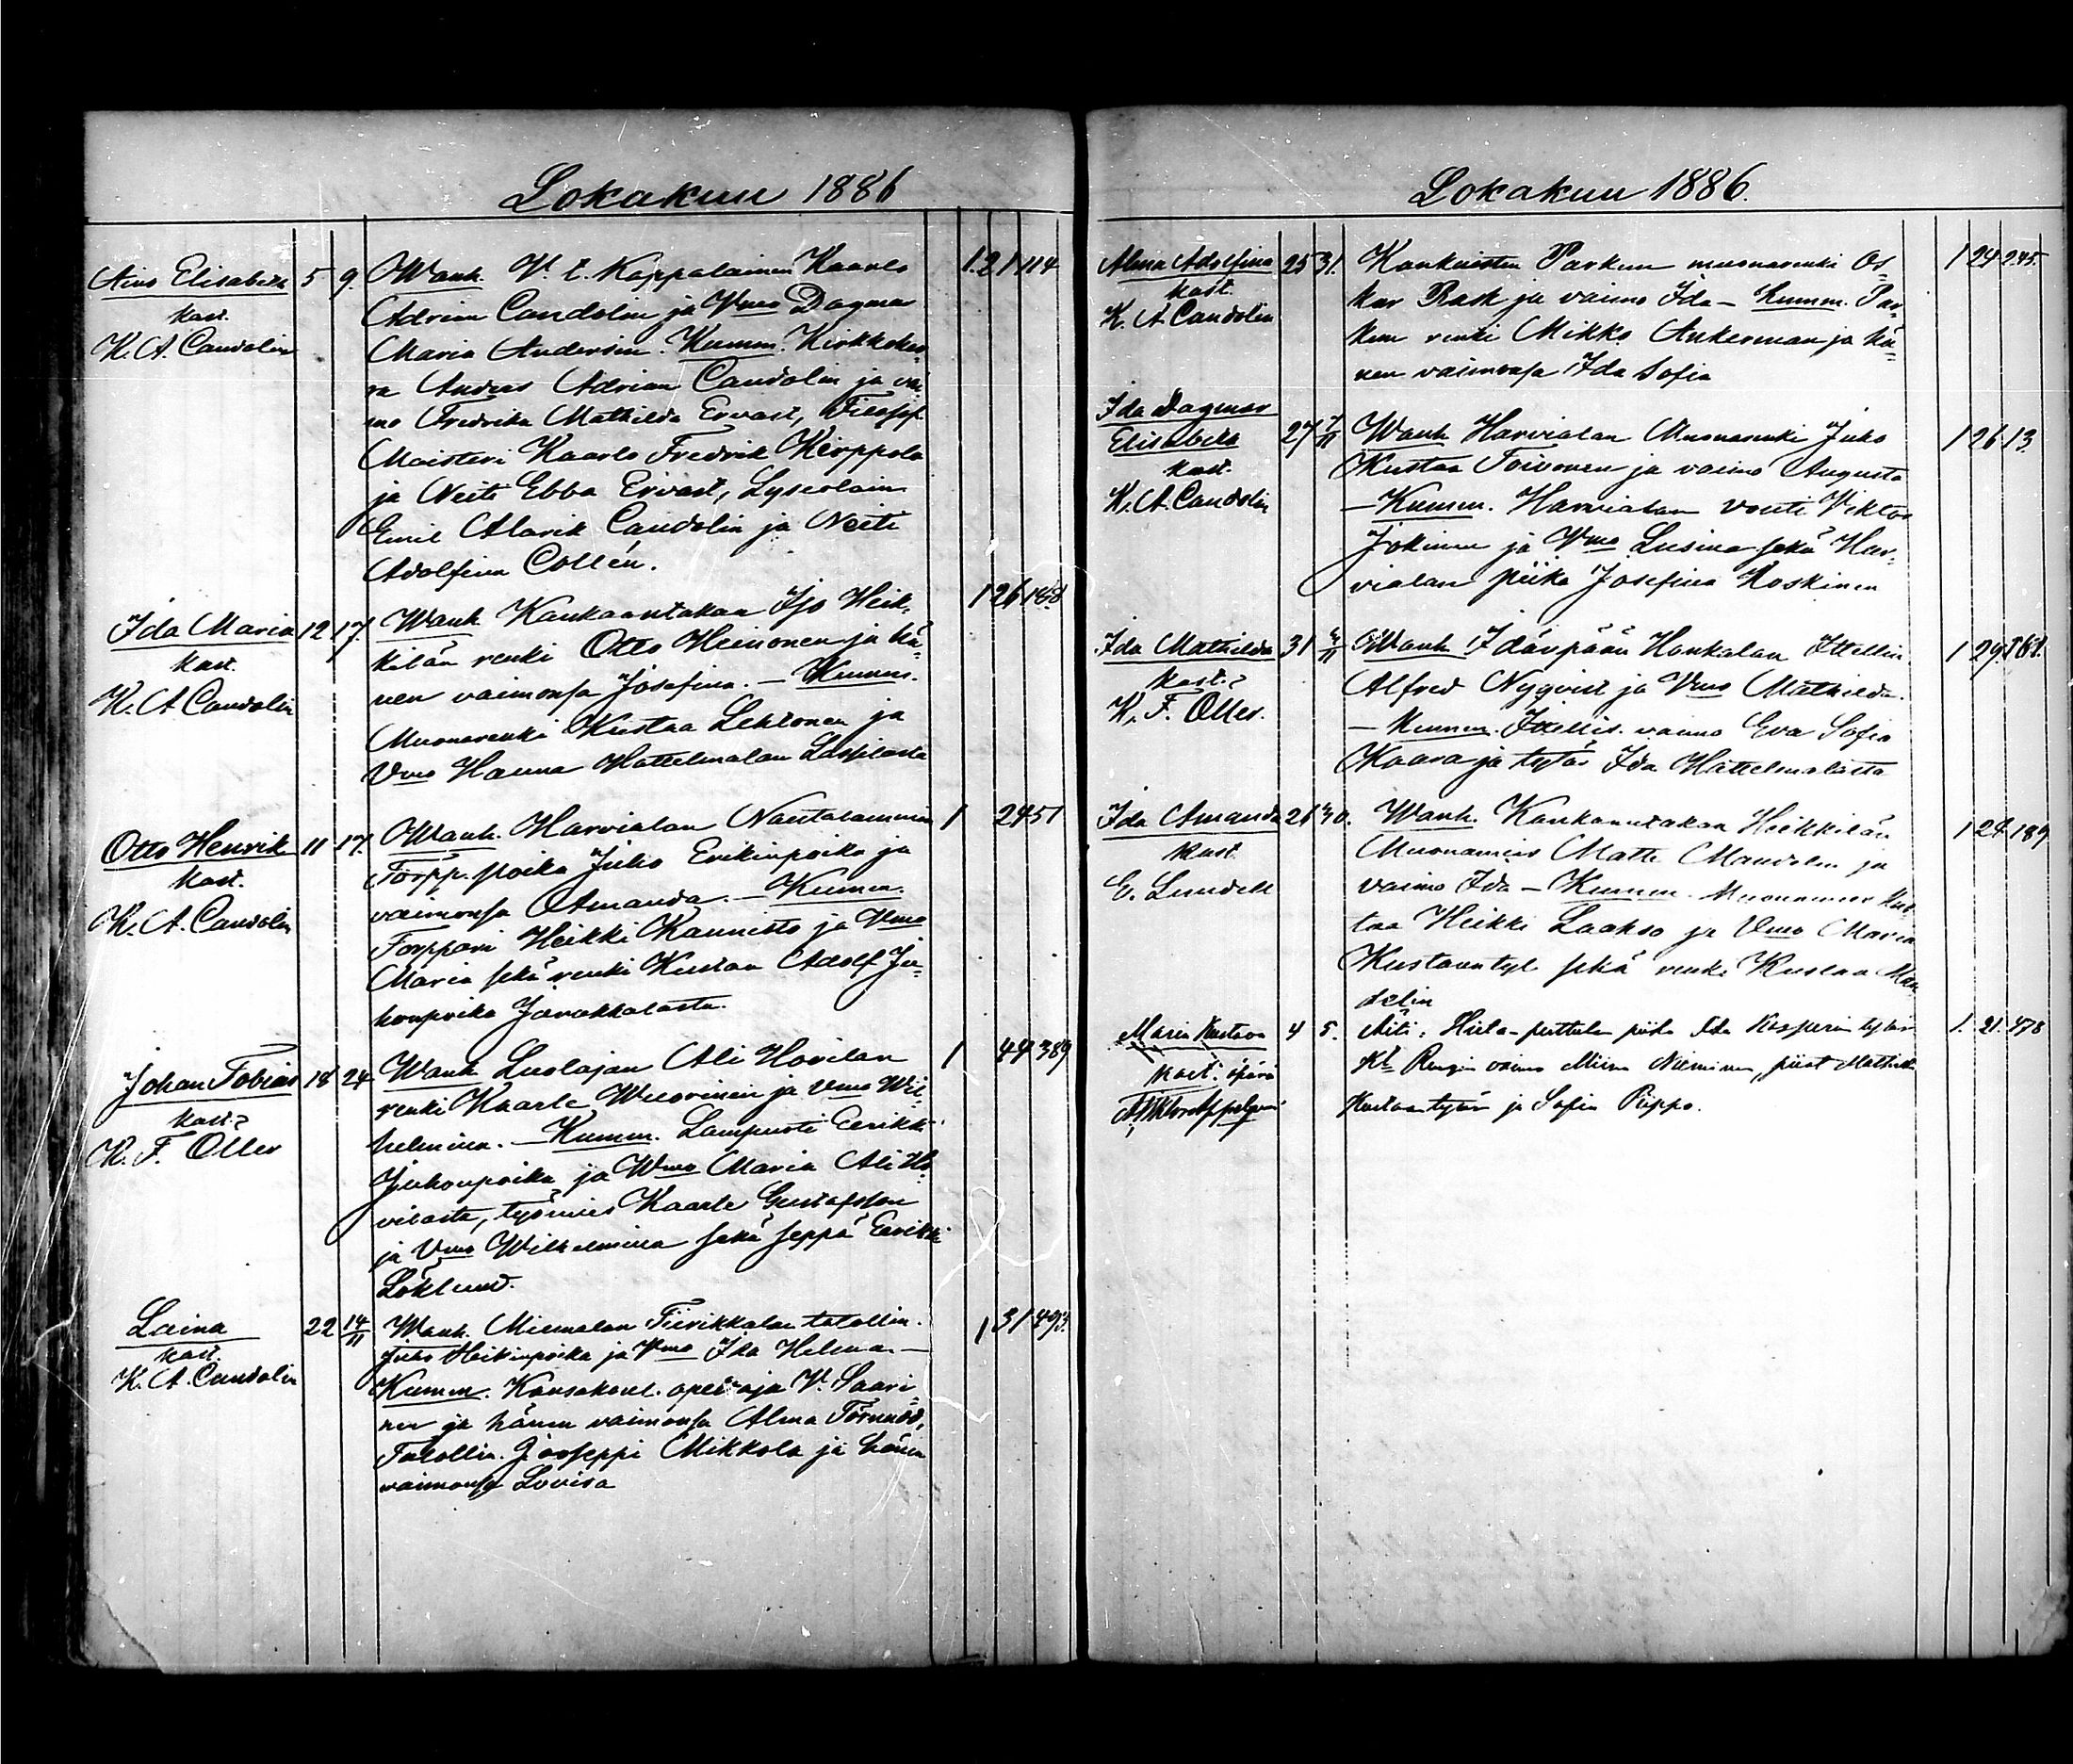 Lokakuu 1886
Aino Elisabeth 5 9. Wanh. V. t. Kappalainen Kaarlo 1. 21 114
kast. Adrian Candolin ja Vmo Dagmar
K. A. Candolin Maria Andersin. Kumm. Kirkkoher
ra Anders Adrian Candolin ja vai
mo Fredrika Mathilda Ervast, Filosof.
Maisteri Kaarlo Fredrik Kerppola
ja Neiti Ebba Ervast, Lyseolain.
Emil Alarik Candolin ja Neiti
Adolfina Collén.
Ida Maria 12 17. Wanh. Kankaantakan Iso Heik- 1 26
kast. kilän renki Otto Heinonen ja hä-
K. A. Candolin nen vaimonsa Josefina. — Kumm.
Muonarenki Kustaa Lehtonen ja
Vmo Hanna Hattelmalan
Otto Henrik 11 17. Wanh. Harvialan 1 24 51
kast. Torpp. poika Juho Erikinpoika ja
K. A. Candolin vaimonsa Amanda. — Kumm.
Torppari Heikki Kannisto ja Vmo
Maria sekä renki Kustaa Adolf Ju-
honpoika Janakkalasta.
Johan Tobias 18 24 Wanh. Luolajan Ali Hovilan 1 44 389
kast. renki Kaarle Wuorinen ja Vmo Wil-
K. F. Oller helmina. — Kumm. Lampuoti Eerikki
Juhonpoika ja Wmo Maria Ali Ho-
vilasta, työmies Kaarle Gustafsson
ja Vmo Wilhelmina sekä seppä Eerikki
Löklund.
Laina 22 14/11 Wanh. Miemalan Tiirikkalan talollin. 1 31 493.
kast. Juho Heikinpoika ja Vmo Ida Helena —
K. A. Candolin Kumm. Kansakoul. opettaja V. Saari
nen ja hänen vaimonsa Alma Törnudd,
Talollin. Jooseppi Mikkola ja hänen
vaimonsa Lovisa
Lokakuu 1886.
Alma Adolfina 25 31. Kankaisten Parkun muonarenki Os- 1 24 245.
kast. kar Rask ja vaimo Ida — Kumm. Par-
K. A. Candolin kun renki Mikko Ankerman ja hä-
nen vaimonsa Ida Sofia
Ida Dagmar
Elisabeth 27 7/11 Wanh. Harvialan Muonarenki Juho 1 26 13
kast. Kustaa Toivonen ja vaimo Augusta
K. A. Candolin — Kumm. Harvialan vouti Viktor
Jokinen ja Vmo Lusina sekä Har-
vialan piika Josefina Koskinen
Ida Mathilda 31 Wanh. Idänpään Hankalan Itellin. 1 29
kast. Alfred Nyqvist ja Vmo Mathilda.
K. F. Oller. — Kumm. Itellis. vaimo Eva Sofia
Kaara ja tytär Ida Hattelmalasta
Ida Amanda 21 Wanh. Kankaantakan Heikkilän 1 24 189
kast. Muonamies Matti Mandelin ja
E. Lundell vaimo Ida — Kumm. Muonamies Kus-
taa Heikki Laakso ja Vmo Maria
Kustaantyt. sekä renki Kustaa Man
delin
Maria Kustava 4 5. Äiti: piika Ida Kasperin tytär 1. 21. 478
kast. äpärä Kt Rengin vaimo Miina Nieminen, piiat Mathilda
Kustaantytär ja Sofia Piippo.